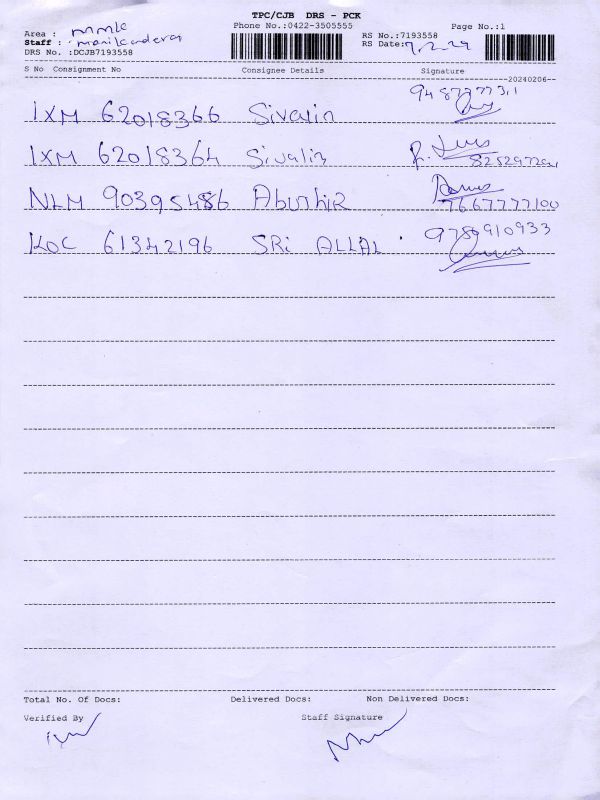 TPC/CJB DRS - PCK
Phone No.:0422-3505555 Page No.:1
Area : MMK
Staff : Manikandera
RS No.:7193558
RS Date:7.2.24
DRS No. :DCJB7193558
S No Consignment No Consignee Details Signature
20240206
IXM 62018366 Sivalin
IXM 62018364 Sivalin 8252972021
NLM 90395486 Aburhir 7667777100
KOC 61342196 SRi ALLAL 9789910933
Total No. Of Docs: Delivered Docs: Non Delivered Docs:
Verified By Staff Signature